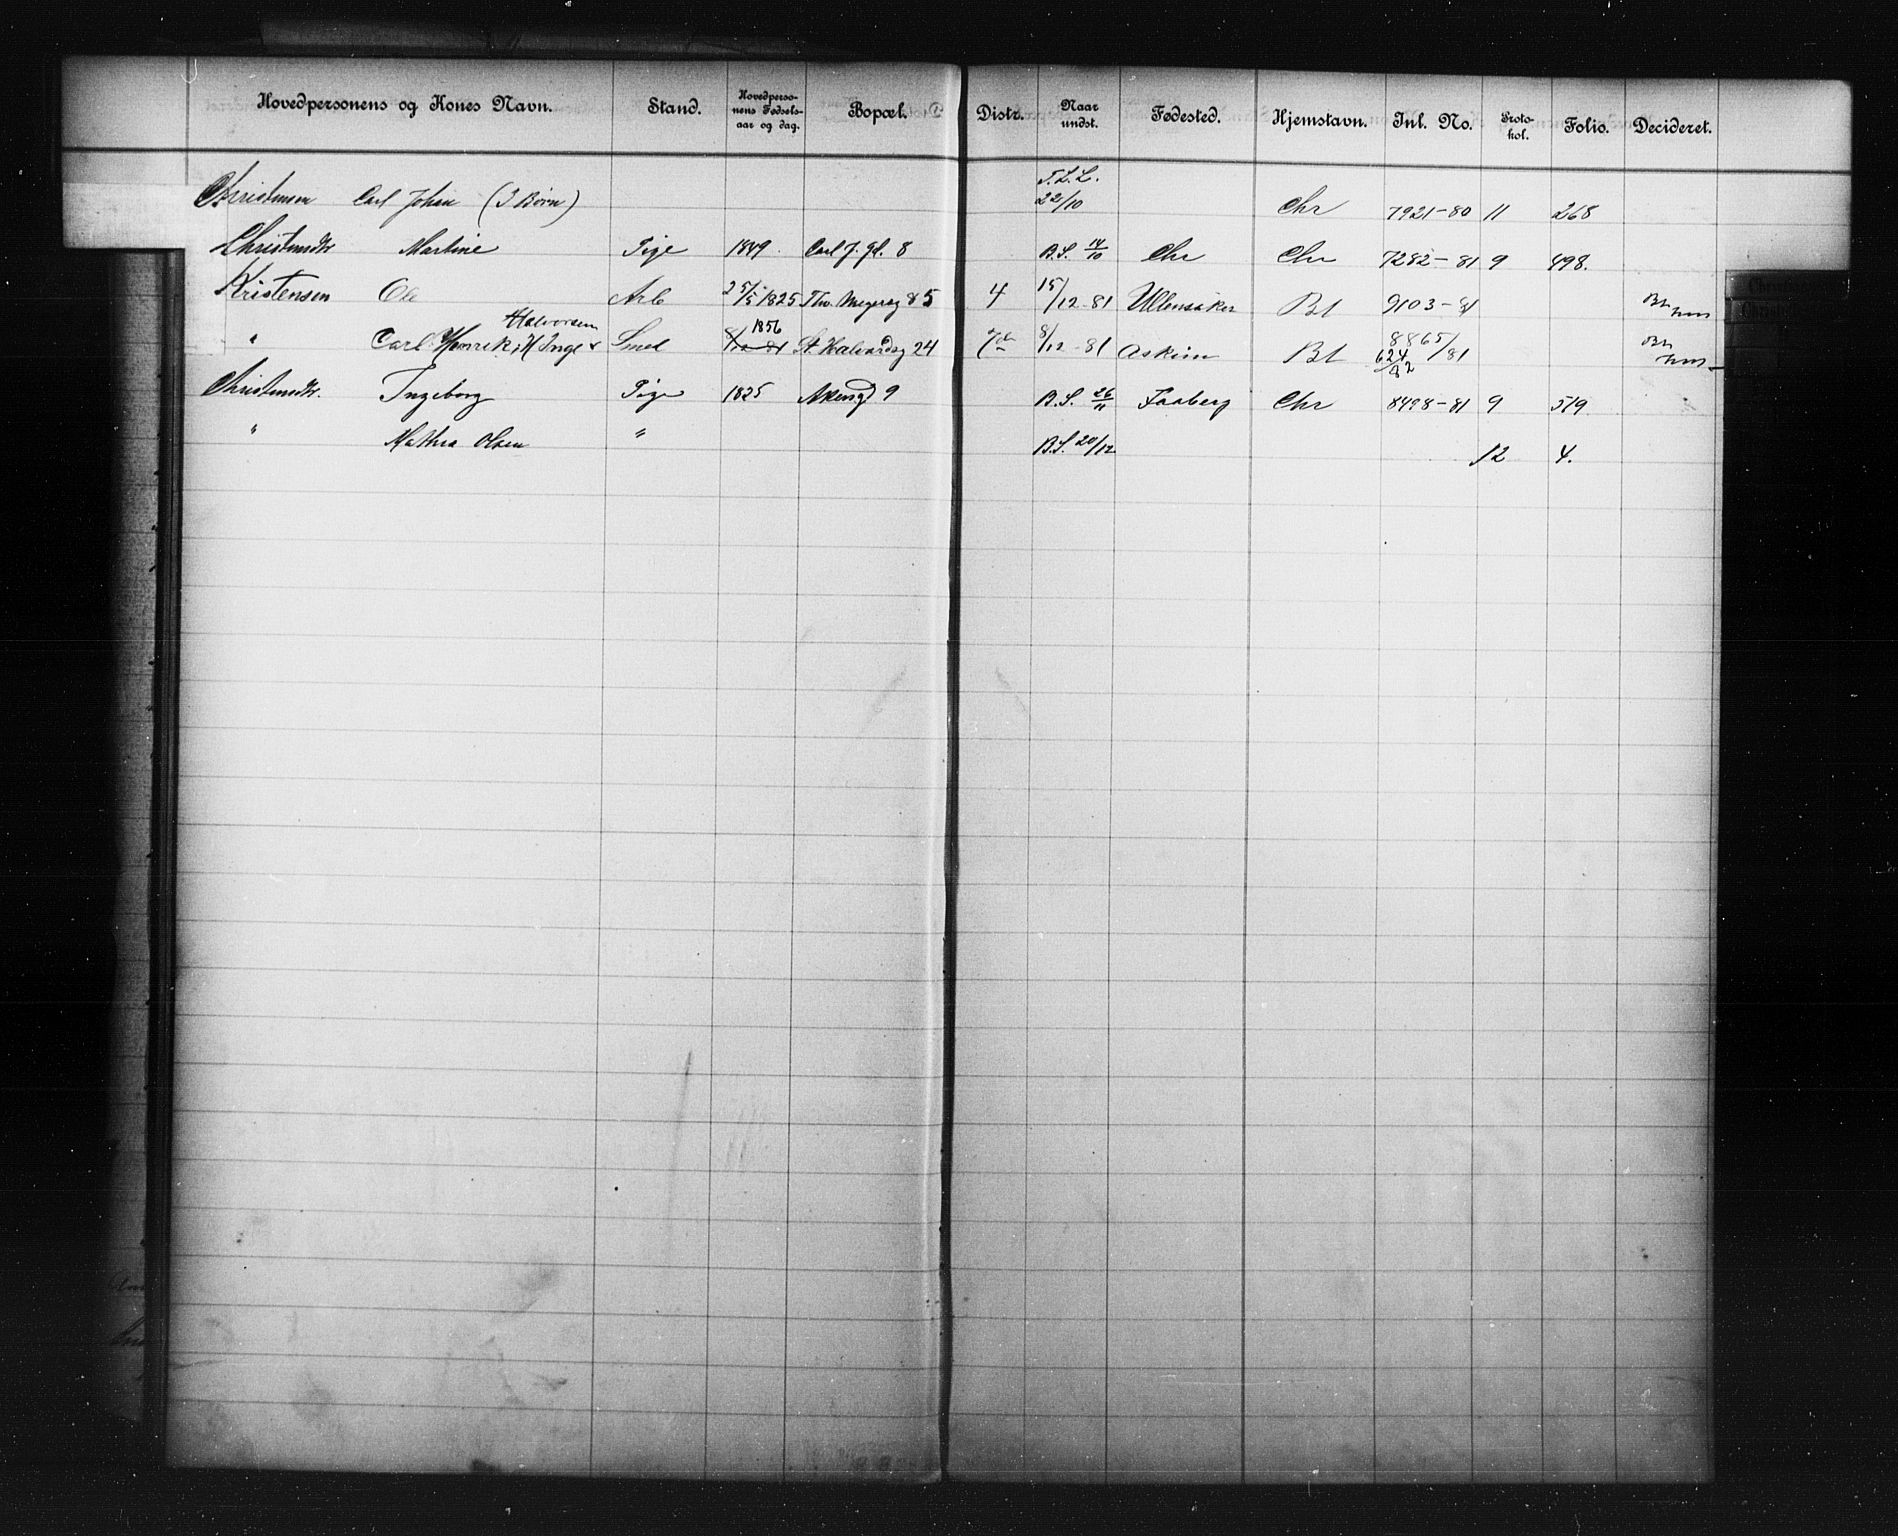 Hovedpersonens og Kones Navn. Stand. Hovedperso-nens Fødsels-aar og dag. Bopæl. Distr. Naar undst. Fødested. Hjemstavn. Inl. No. Proto-kol. Folio. Decideret.
Christensen Carl Johan (3 Børn) T.L.L. 22/10 Chr 7921-80 11 268
Christensdtr Martine Pige 1849. Carl J. gd. 8 B.S. 14/10 Chr Chr 7282-81 9 498.
Kristensen Ole Arb 25/5 1825 Thv. Meyersg 85 4 15/12-81 Ullensaker Bt 9103-81
Halvorsen 1856 8865/81
" Carl Henrik, H Inge Smed St Halvardsg 24 7 8/12-81 Askim Bt 624/82
Christensdtr. Ingeborg Pige 1825 Akersgd 9 B.S. 26/11 Faaberg Chr 8498-81 9 519
" Mathea Olsen " B.S. 20/12 12 4.